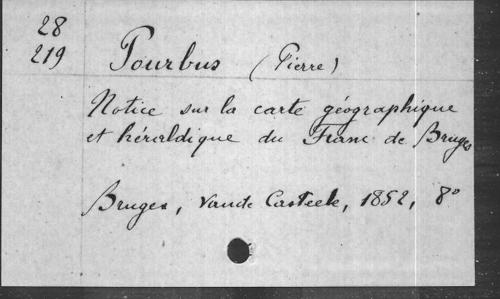 28
219
Pourbus (Pierre)
Notice sur la carte géographique
et héraldique du Franc de Bruges
Bruges, Vande Casteele, 1852, 8°